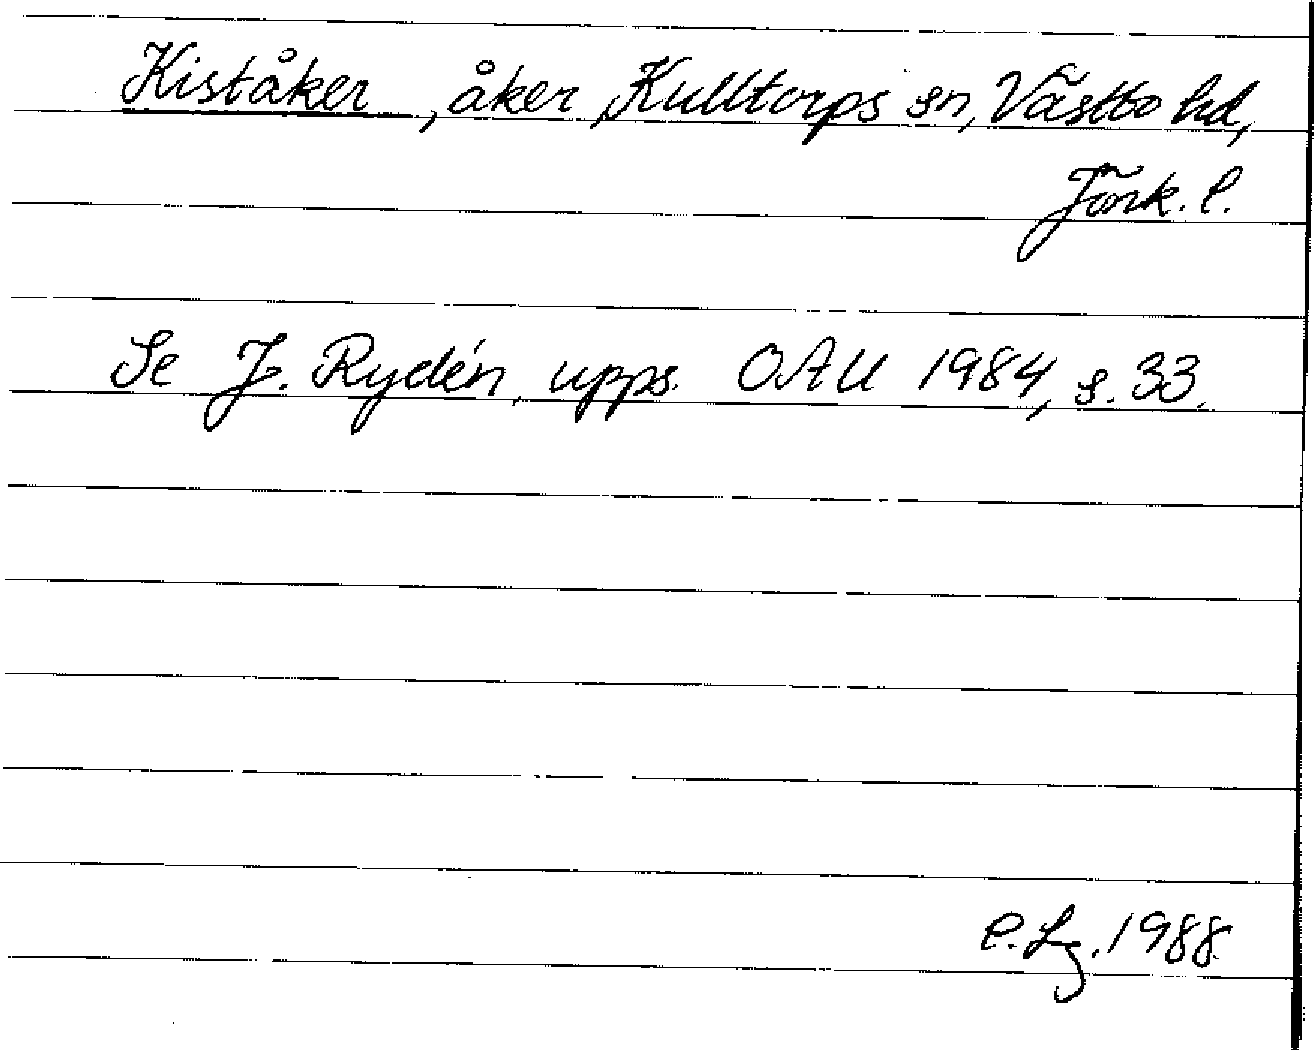 Kiståker, åker, Kulltorps sn, Västbo hd,
Jönk. l.
Se J. Rydén, upps. OAU 1984, s. 33.
E. Lg. 1988